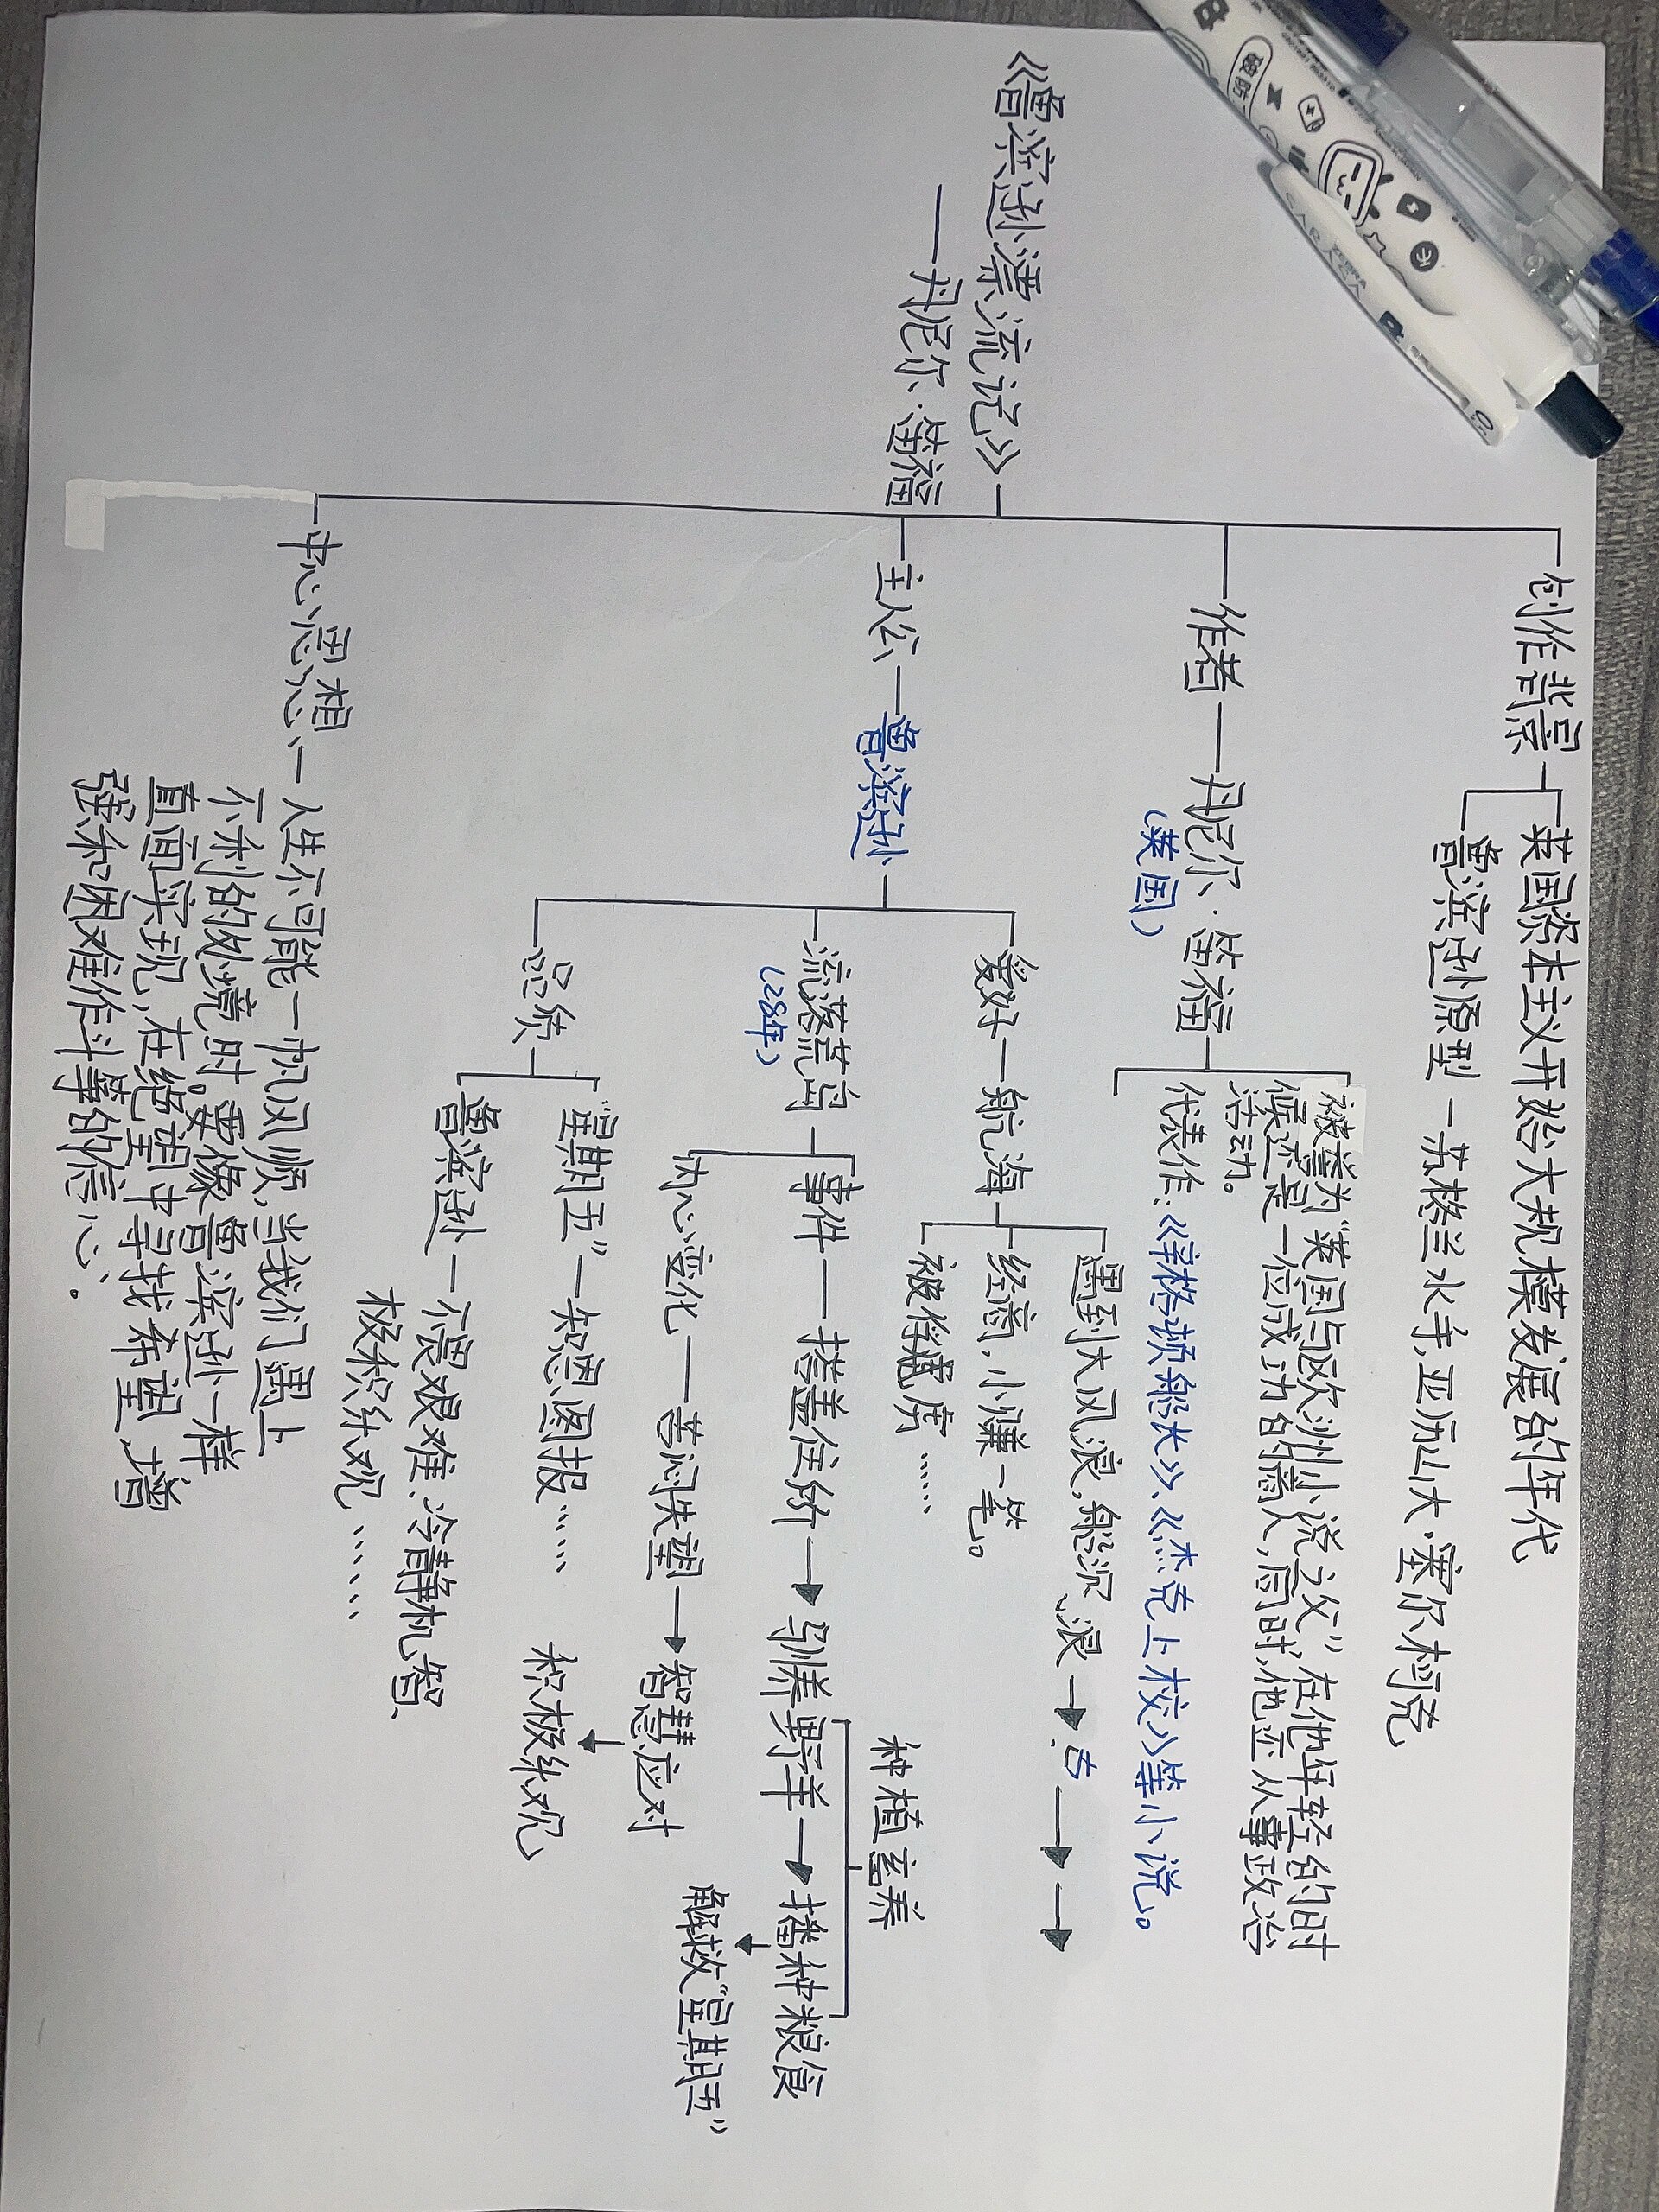 《鲁滨逊漂流记》
——丹尼尔·笛福
创作背景
英国资本主义开始大规模发展的年代
鲁滨逊原型—苏格兰水手,亚历山大·塞尔柯克
作者—丹尼尔·笛福
(英国)
被誉为“英国与欧洲小说之父”,在他年轻的时
候还是一位成功的商人,同时,他还从事政治
活动。
代表作:《辛格顿船长》、《杰克上校》等小说。
主人公—鲁滨逊
爱好—航海
遇到大风浪,船沉
经商,小赚一笔。
被俘虏......
流落荒岛
(28年)
事件——搭盖住所→驯养野羊→播种粮食
种植畜养
解救“星期五”
内心变化——苦闷失望→智慧应对
积极乐观
品质
“星期五”—知恩图报......
鲁滨逊—不畏艰难、冷静机智、
极积乐观......
中心思想—人生不可能一帆风顺,当我们遇上
不利的处境时,要像鲁滨逊一样
直面实现,在绝望中寻找希望,增
强和困难作斗争的信心。
破防
ZEBRA